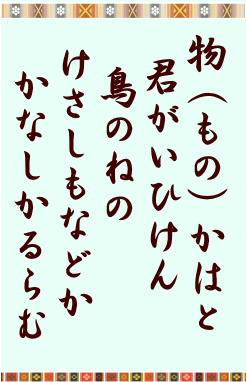 物（もの）かはと
君がいひけん
鳥のねの
けさしもなどか
かなしかるらむ